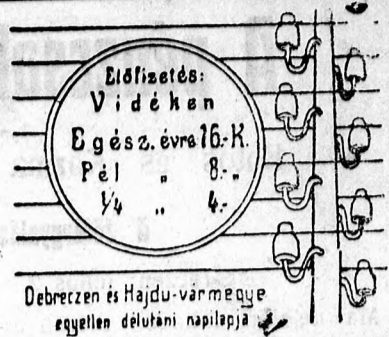 Előfizetés:
Vidéken
Egész. évre 16.-K.
Fél „ 8.-„
1/4 „ 4.-
Debreczen és Hajdu-vármegye
egyetlen délutáni napilapja